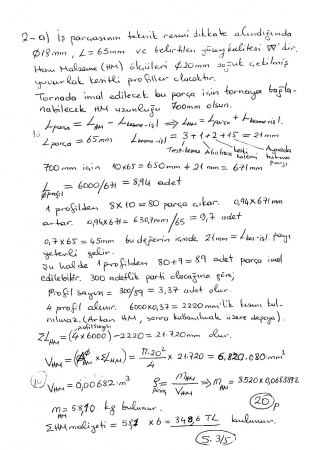 2-a) İş parçasının teknik resmi dikkate alındığında
Ø18mm, L=65mm ve belirtilen yüzey kalitesi ∇'dir.
Ham Malzeme (HM) ölçüleri Ø20mm soğuk çekilmiş
yuvarlak kesitli profiller olacaktır.
Tornada imal edilecek bu parça için tornaya bağla-
nabilecek HM uzunluğu 700mm olsun.
10 Lparça = LHM - Lkesme-işl ⇒ LHM = Lparça + Lkesme-işl.
Lparça = 65mm Lkesme-işl = 3+1+2+15 = 21mm
Test.kesme kesici kalemi Aynada tutma payı
700 mm için 10x65 = 650mm + 21mm = 671mm
Lprofil = 6000/671 = 8,94 adet
1 profilden 8x10 = 80 parça çıkar. 0,94x671mm
artar. 0,94x671 = 630,7mm/65 = 9,7 adet
0,7x65 = 45mm bu değerin içinde 21mm = Lkes-işl. payı
yeterli gelir.
Şu halde 1 profilden 80+9 = 89 adet parça imal
edilebilir. 300 adetlik parti olacağına göre;
Profil sayısı = 300/89 = 3,37 adet olur.
4 profil alınır. 6000x0,37 = 2220mm'lik kısmı kul-
nılmaz. (Artan HM, sonra kullanılmak üzere depoya).
profil sayısı
ΣLHM = (4x6000) - 2220 = 21.720mm olur.
VHM = (A x ΣLHM) = π.20²/4 x 21.720 = 6.820.080 mm³
10 VHM = 0,00682 m³ ρ = mHM/VHM ⇒ mHM = 8520x0,0068892
m = 58,10 kg bulunur. 20 p
ΣHM maliyeti = 58,1 x 6 = 348,6 TL bulunur.
S.3/5